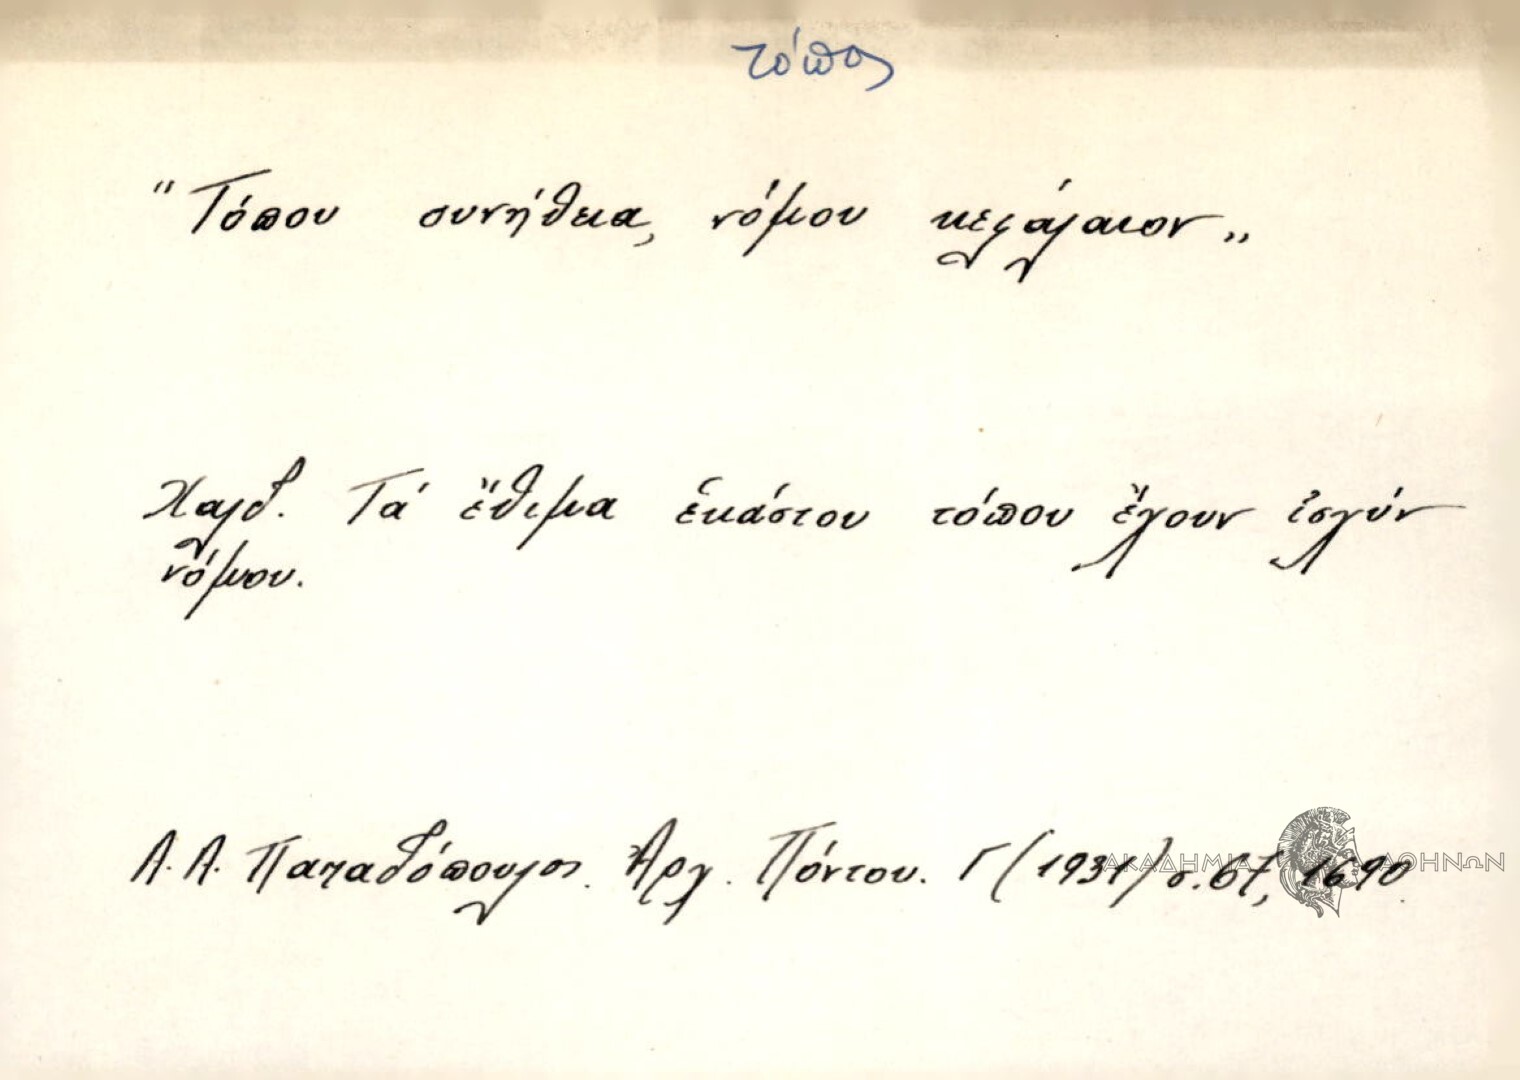 τόπος
"Τόπου συνήθεια, νόμου κεφάλαιον„
Χαλδ. Τά ἔθιμα ἑκάστου τόπου ἔχουν ἰσχύν
νόμου.
Α. Α. Παπαδόπουλος. Ἀρχ. Πόντου. Γ (1931) σ. 67, 1690.
ΑΚΑΔΗΜΙΑ ΑΘΗΝΩΝ